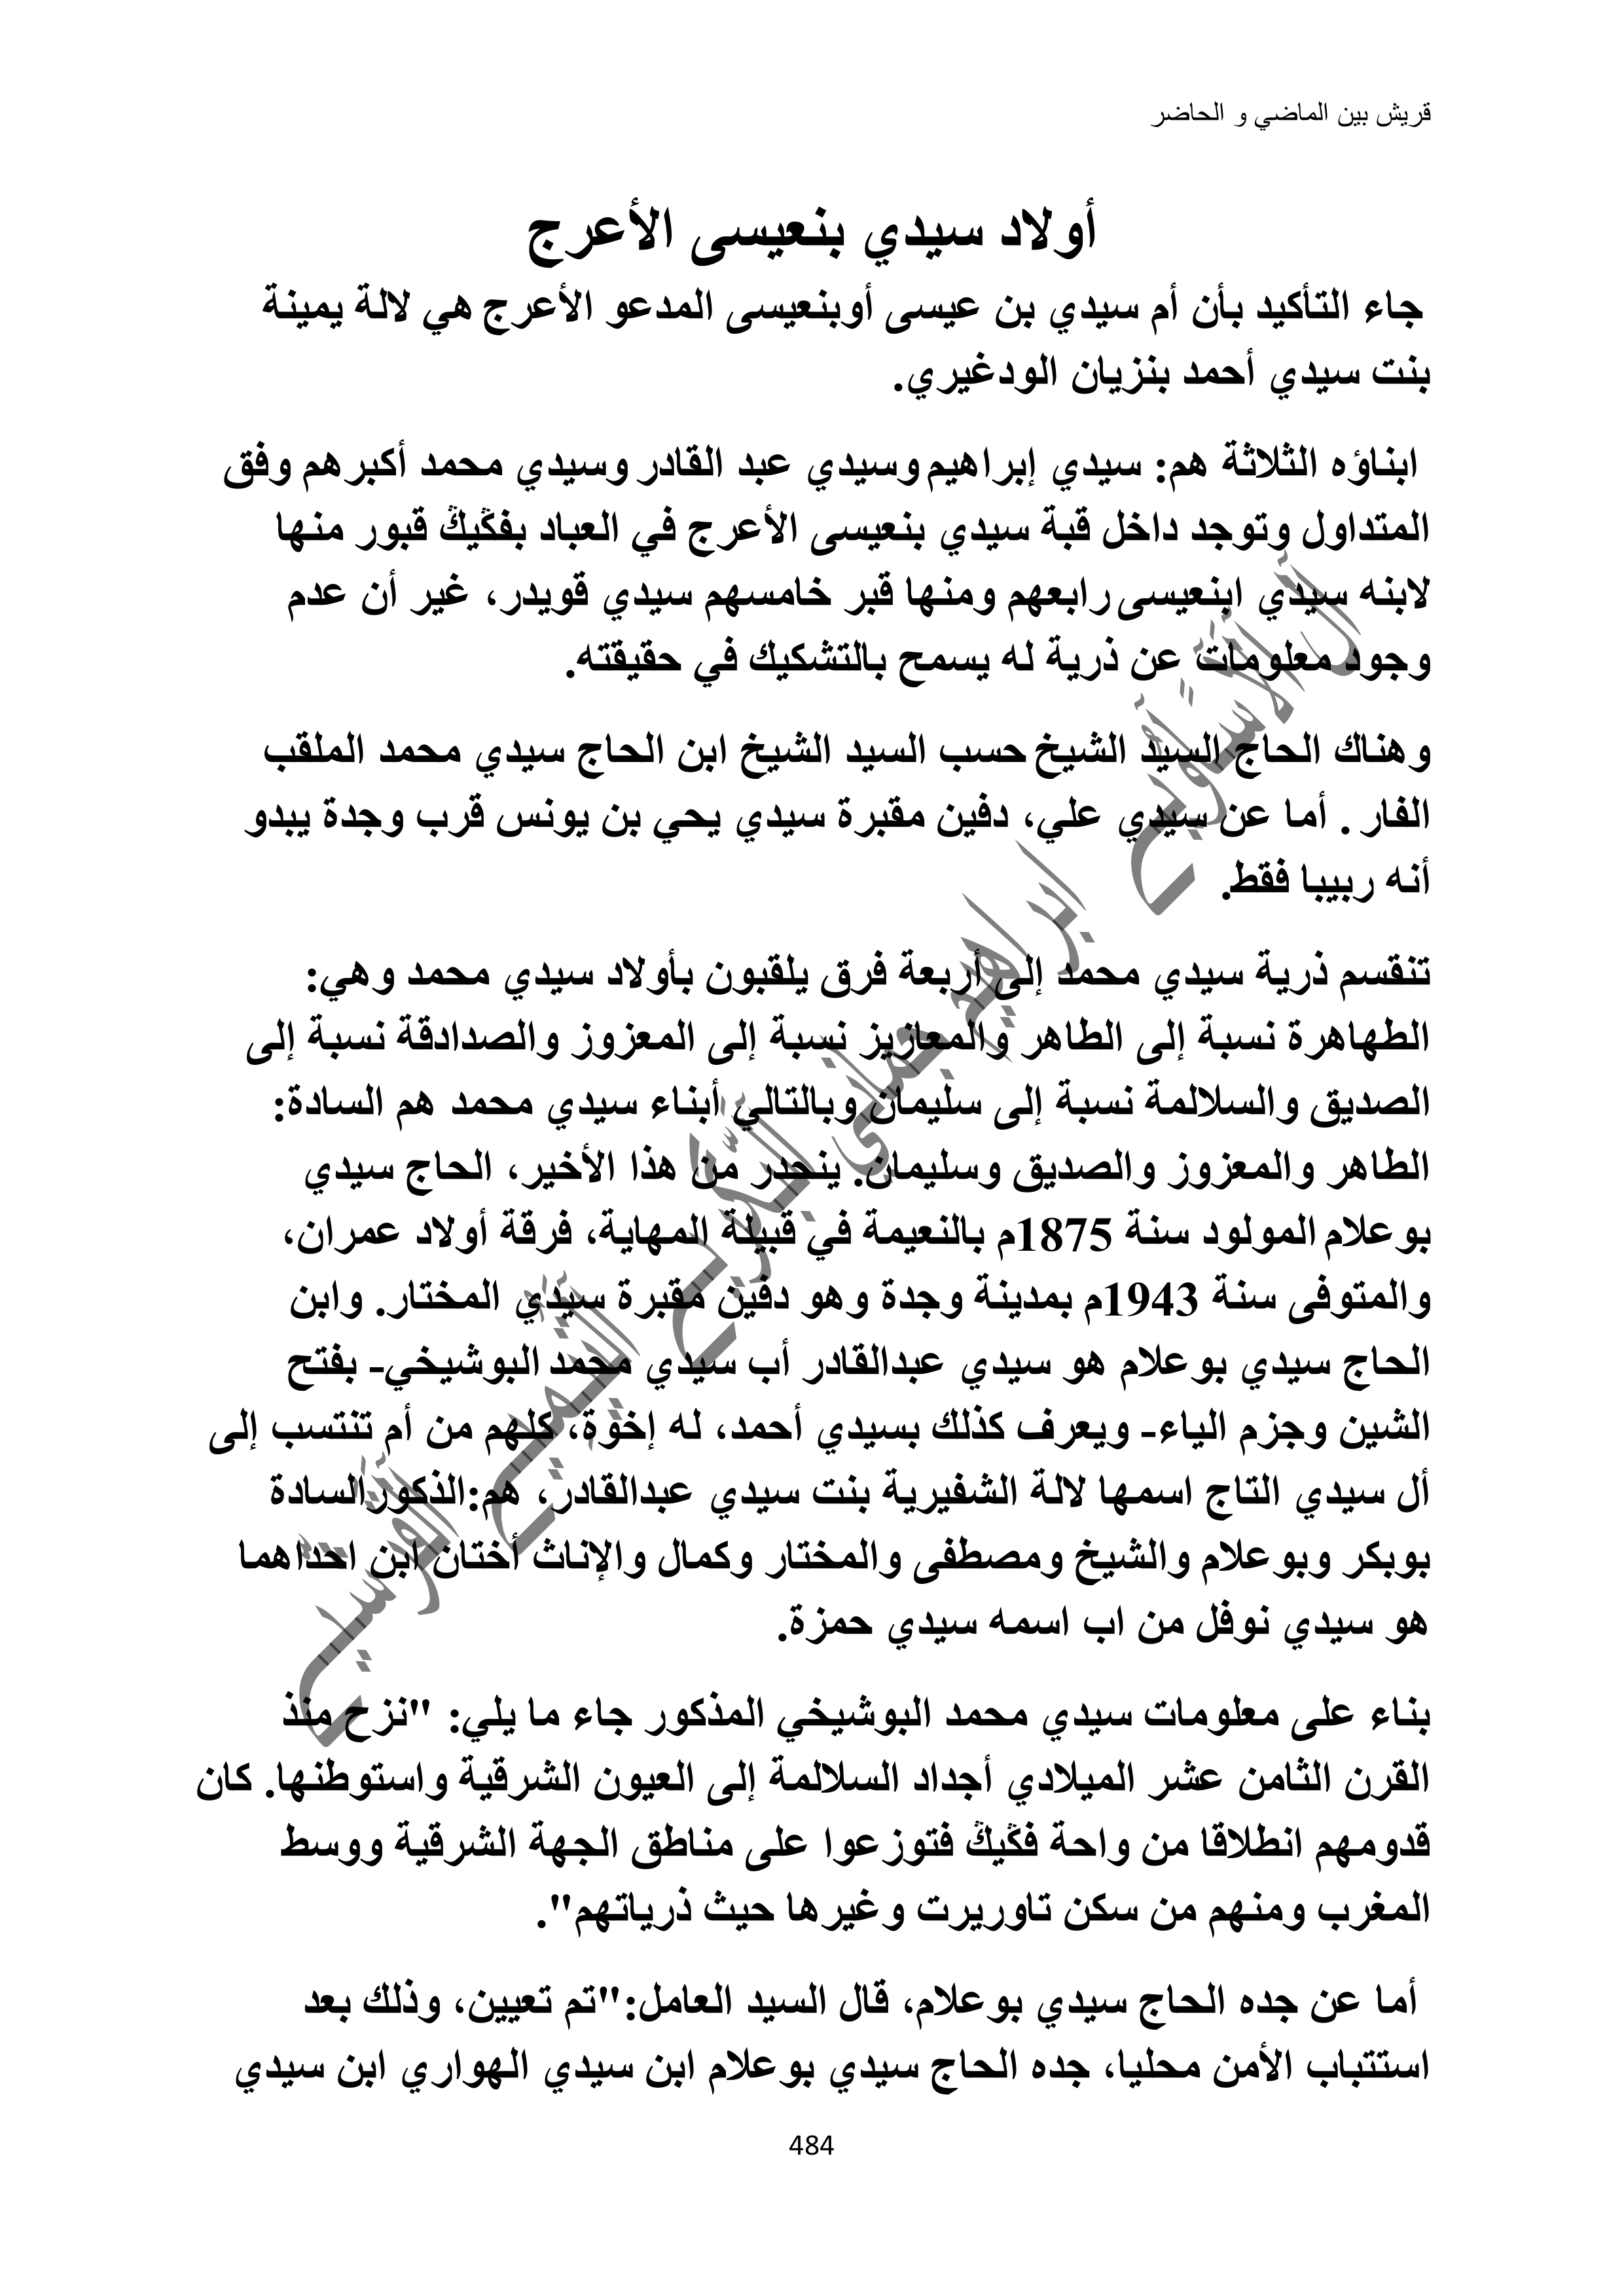 قريش بين الماضي و الحاضر
أولاد سيدي بنعيسى الأعرج
جاء التأكيد بأن أم سيدي بن عيسى أوبنعيسى المدعو الأعرج هي لالة يمينة
بنت سيدي أحمد بنزيان الودغيري.
ابناؤه الثلاثة هم: سيدي إبراهيم وسيدي عبد القادر وسيدي محمد أكبرهم وفق
المتداول وتوجد داخل قبة سيدي بنعيسى الأعرج في العباد بفݣيݣ قبور منها
لابنه سيدي ابنعيسى رابعهم ومنها قبر خامسهم سيدي قويدر، غير أن عدم
وجود معلومات عن ذرية له يسمح بالتشكيك في حقيقته.
وهناك الحاج السيد الشيخ حسب السيد الشيخ ابن الحاج سيدي محمد الملقب
الفار . أما عن سيدي علي، دفين مقبرة سيدي يحي بن يونس قرب وجدة يبدو
أنه ربيبا فقط.
تنقسم ذرية سيدي محمد إلى أربعة فرق يلقبون بأولاد سيدي محمد وهي:
الطهاهرة نسبة إلى الطاهر والمعازيز نسبة إلى المعزوز والصدادقة نسبة إلى
الصديق والسلالمة نسبة إلى سليمان وبالتالي أبناء سيدي محمد هم السادة:
الطاهر والمعزوز والصديق وسليمان. ينحدر من هذا الأخير، الحاج سيدي
بوعلام المولود سنة 1875م بالنعيمة في قبيلة المهاية، فرقة أولاد عمران،
والمتوفى سنة 1943م بمدينة وجدة وهو دفين مقبرة سيدي المختار. وابن
الحاج سيدي بوعلام هو سيدي عبدالقادر أب سيدي محمد البوشيخي- بفتح
الشين وجزم الياء- ويعرف كذلك بسيدي أحمد، له إخوة، كلهم من أم تنتسب إلى
أل سيدي التاج اسمها لالة الشفيرية بنت سيدي عبدالقادر، هم:الذكورالسادة
بوبكر وبوعلام والشيخ ومصطفى والمختار وكمال والإناث أختان ابن احداهما
هو سيدي نوفل من اب اسمه سيدي حمزة.
بناء على معلومات سيدي محمد البوشيخي المذكور جاء ما يلي: "نزح منذ
القرن الثامن عشر الميلادي أجداد السلالمة إلى العيون الشرقية واستوطنها. كان
قدومهم انطلاقا من واحة فݣيݣ فتوزعوا على مناطق الجهة الشرقية ووسط
المغرب ومنهم من سكن تاوريرت وغيرها حيث ذرياتهم".
أما عن جده الحاج سيدي بوعلام، قال السيد العامل:"تم تعيين، وذلك بعد
استتباب الأمن محليا، جده الحاج سيدي بوعلام ابن سيدي الهواري ابن سيدي
484